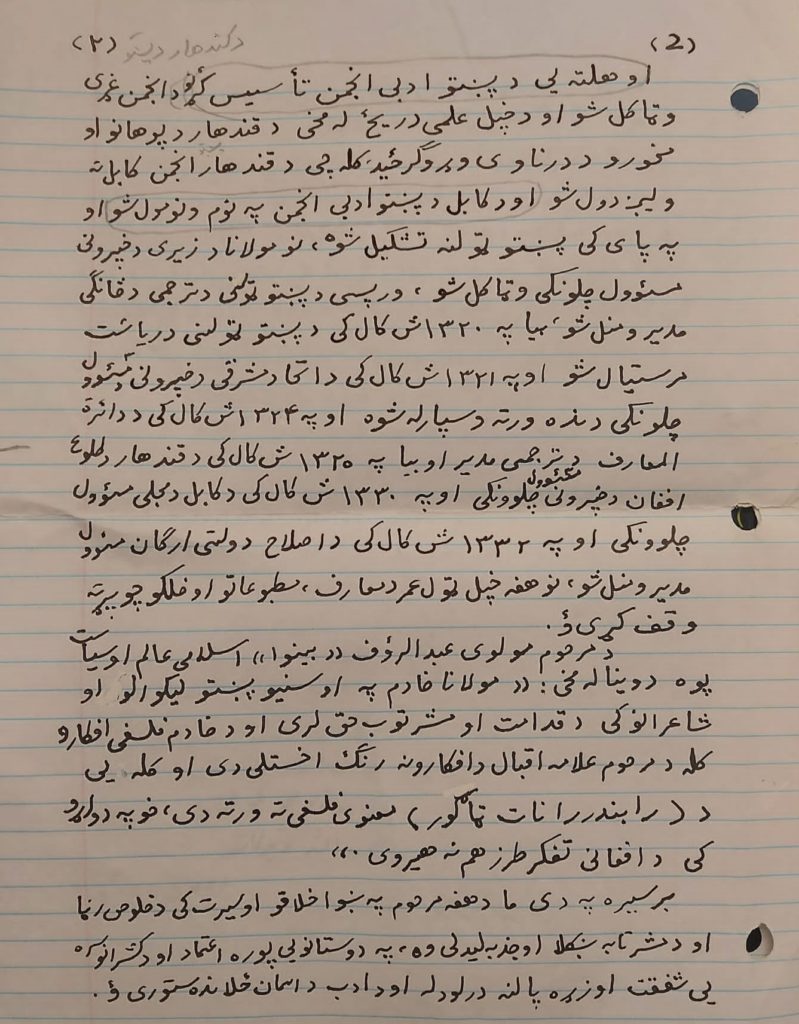 (2) د کندهار د پښتو (۲)
او هلته یې د پښتو ادبي انجمن تأسیس کړ نو د انجمن غړی
وټاکل شو او د خپل علمي دریځ له مخې د قندهار د پوهانو او
مخورو د درناوی وړ وګرځید، کله چې د قندهار انجمن کابل ته
ولیږدول شو او د کابل د پښتو ادبي انجمن په نوم ونومول شو او
په پای کی پښتو ټولنه تشکیل شوه، نو مولانا د زیری د خپرونی
مسؤول چلونکی وټاکل شو، ورپسی د پښتو ټولنی د ترجمی د څانګی
مدیر ومنل شو، بیا په ۱۳۲۰ ش کال کی د پښتو ټولنی د ریاست
مرستیال شو او په ۱۳۲۱ ش کال کی د اتحاد مشرقی د خپرونی د مسؤول
چلونکی دنده ورته وسپارله شوه او په ۱۳۲۴ ش کال کی د دائرة
المعارف د ترجمی مدیر او بیا په ۱۳۲۵ ش کال کی د قندهار د طلوع
افغان د خپرونی مسؤول چلوونکی او په ۱۳۳۰ ش کال کی د کابل د مجلی مسؤول
چلوونکی او په ۱۳۳۲ ش کال کی د اصلاح دولتی ارګان مسؤول
مدیر ومنل شو، نو هغه خپل ټول عمر د معارف، مطبوعاتو او خلکو چوپړ ته
وقف کړی ؤ.
د مرحوم مولوی عبدالرؤف «بینوا» اسلامي عالم او سیاست
پوه د وینا له مخی: «مولانا خادم په اوسنیو پښتو لیکوالو او
شاعرانو کی د قدامت او مشرتوب حق لری او د خادم فلسفی افکارو
کله د مرحوم علامه اقبال د افکارو نه رنګ اخستلی دی او کله یی
د (رابندررانات ټاګور) معنوی فلسفی ته ورته دی، خو په دواړو
کی د افغانی تفکر طرز هم نه هیروی.»
برسیره په دی ما د هغه مرحوم په ښو اخلاقو او سیرت کی د خلوص رڼا
او د مشرتابه ښکلا او جذبه لیدلی وه، په دوستانو یی پوره اعتماد او د کشرانو سره
یی شفقت او زړه پالنه درلودله او د ادب د اسمان ځلانده ستوری ؤ.